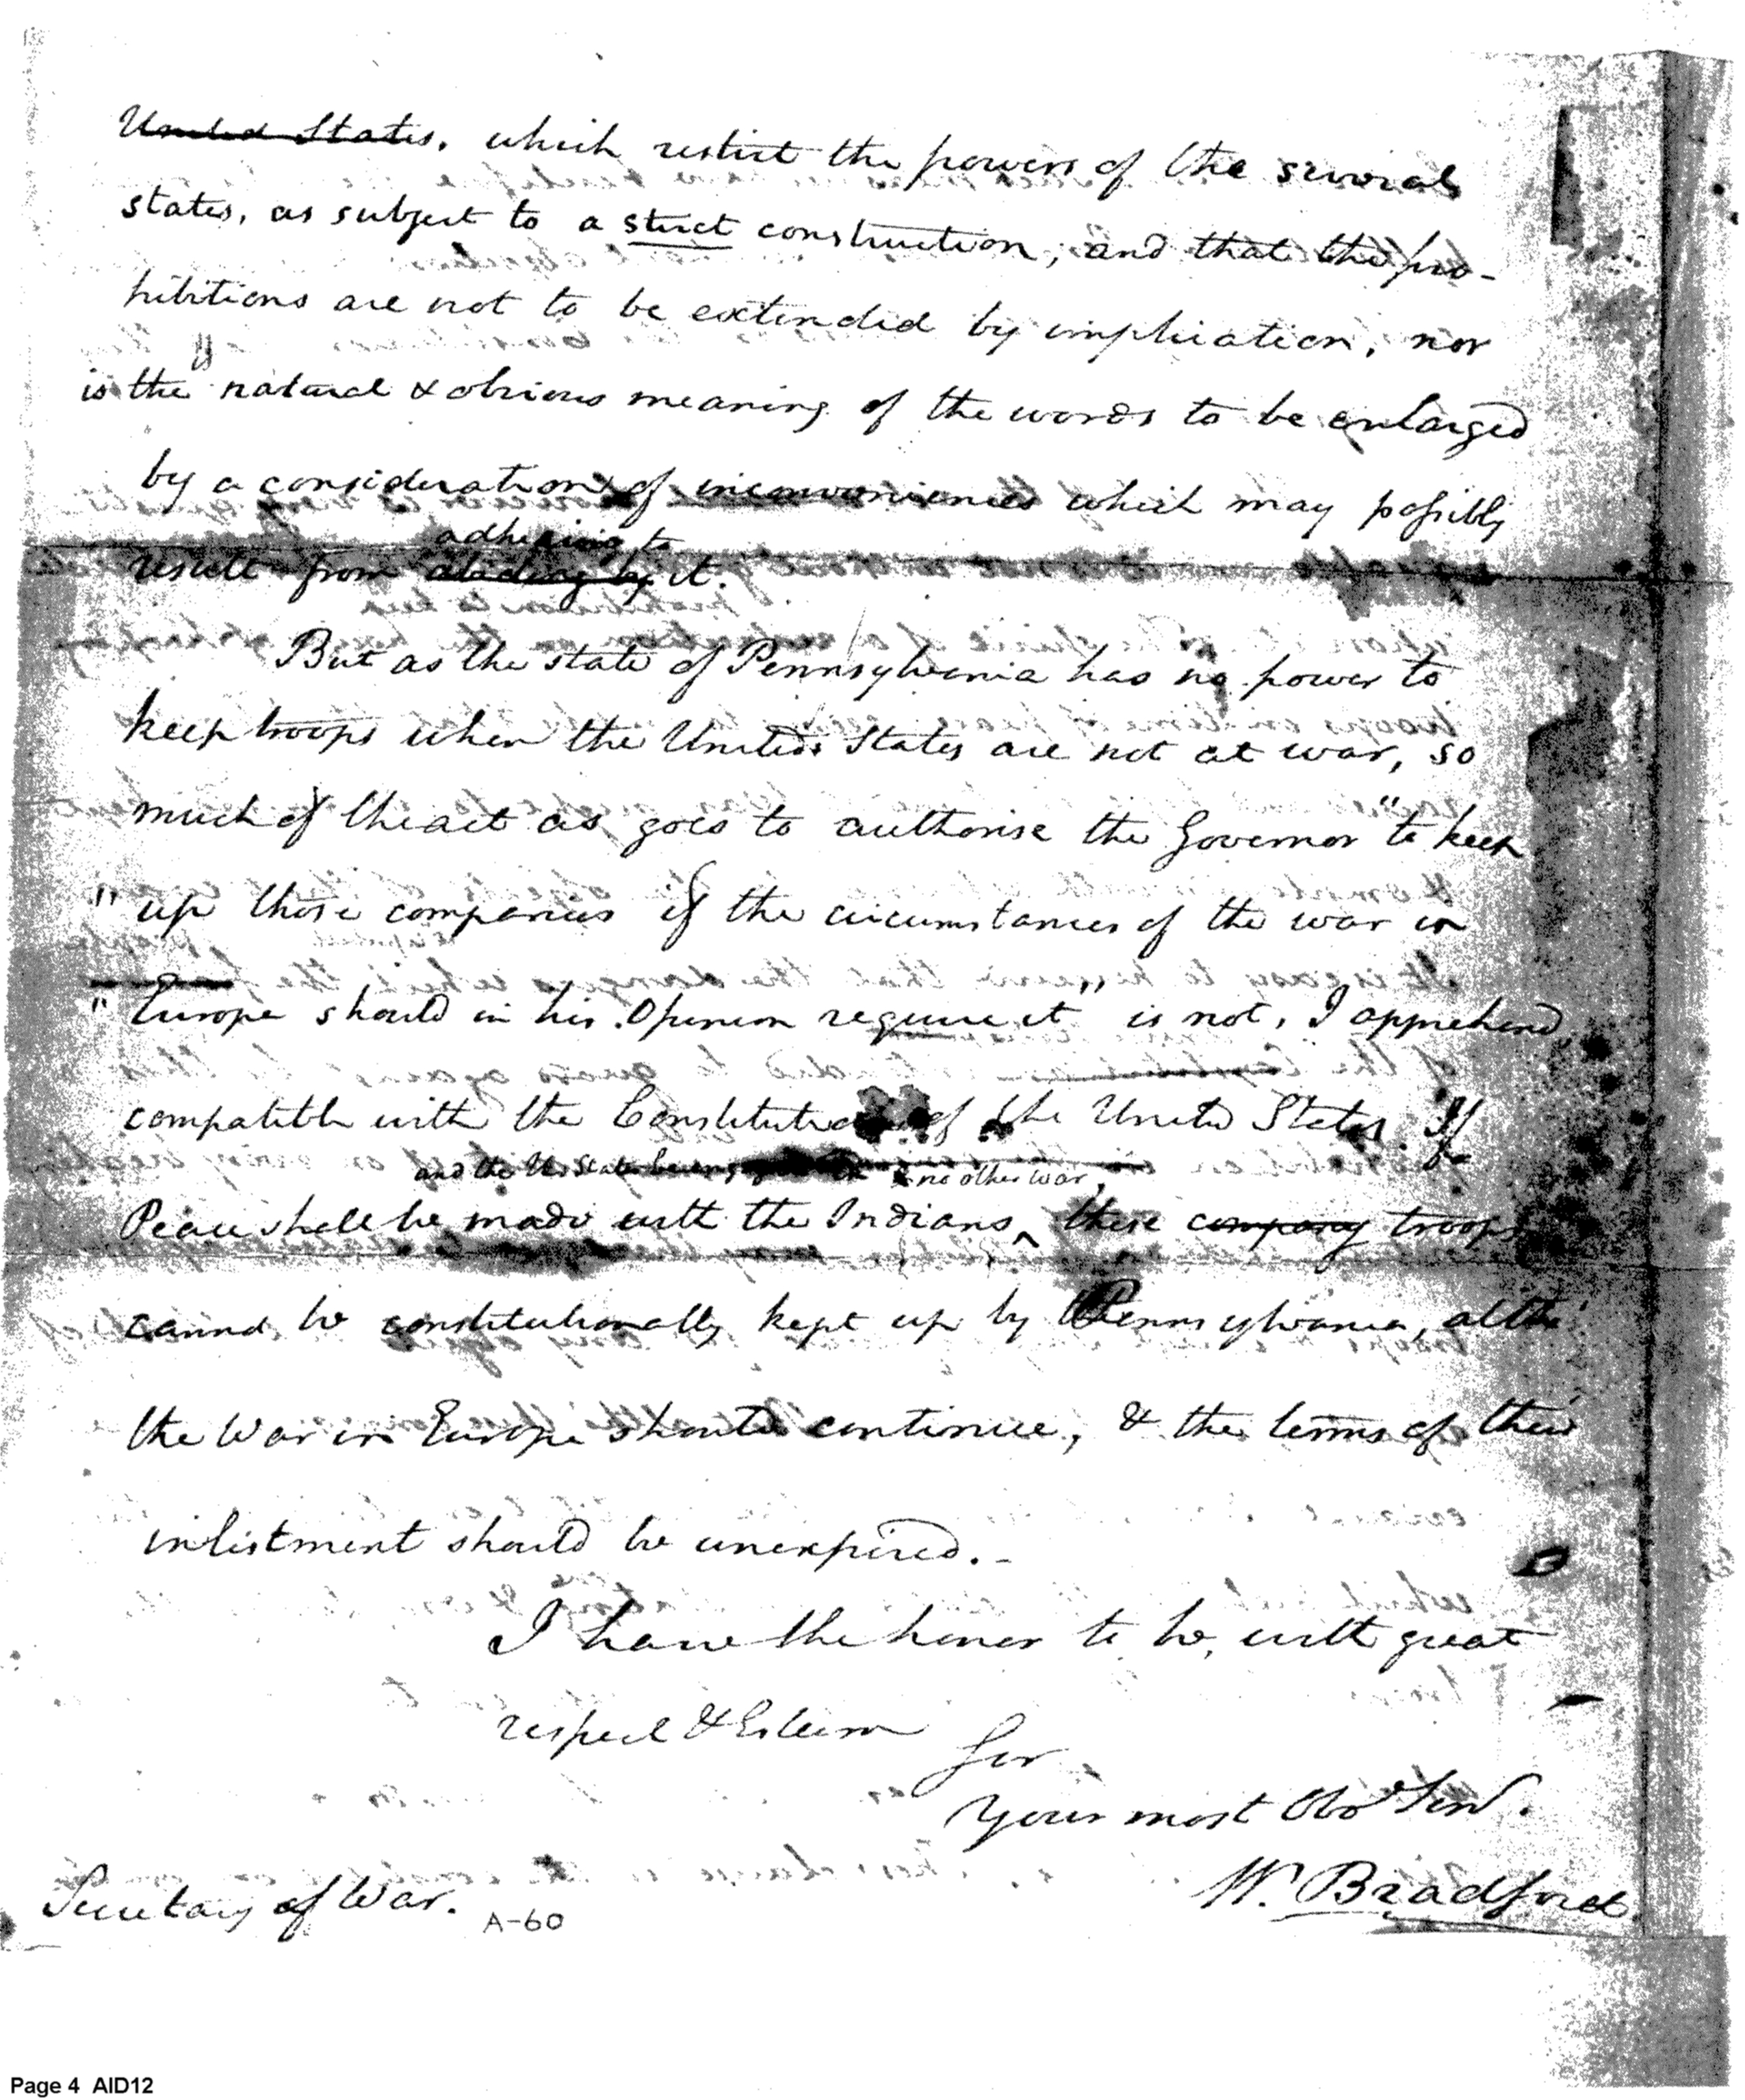 United States, which restrict the powers of the several
states, as subject to a strict construction; and that the pro-
hibitions are not to be extended by implication, nor
is the natural & obvious meaning of the words to be enlarged
by a consideration of inconveniences which may possibly
adhering to
result from abiding by it.
But as the state of Pennsylvania has no power to
keep troops when the United States are not at war, so
much of the act as goes to authorise the Governor "to keep
" up those companies if the circumstances of the war in
" Europe should in his Opinion require it" is not, I apprehend,
compatible with the Constitution of the United States. If
and the U. States being no other war,
Peace shall be made with the Indians ^ these company troops
cannot be constitutionally kept up by Pennsylvania, altho'
the War in Europe should continue, & the terms of their
inlistment should be unexpired.-
I have the honor to be, with great
respect & Esteem
Sir
Your most Obt Servt.
W. Bradford.
Secretary of War.
A-60
Page 4 AID12